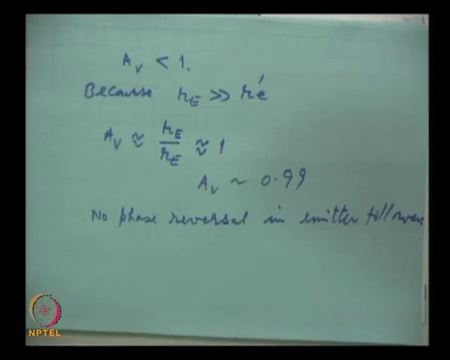 A_v < 1.
Because r_E >> r'e
A_v ≈ r_E/r_E ≈ 1
A_v ~ 0.99
No phase reversal in emitter follower
NPTEL